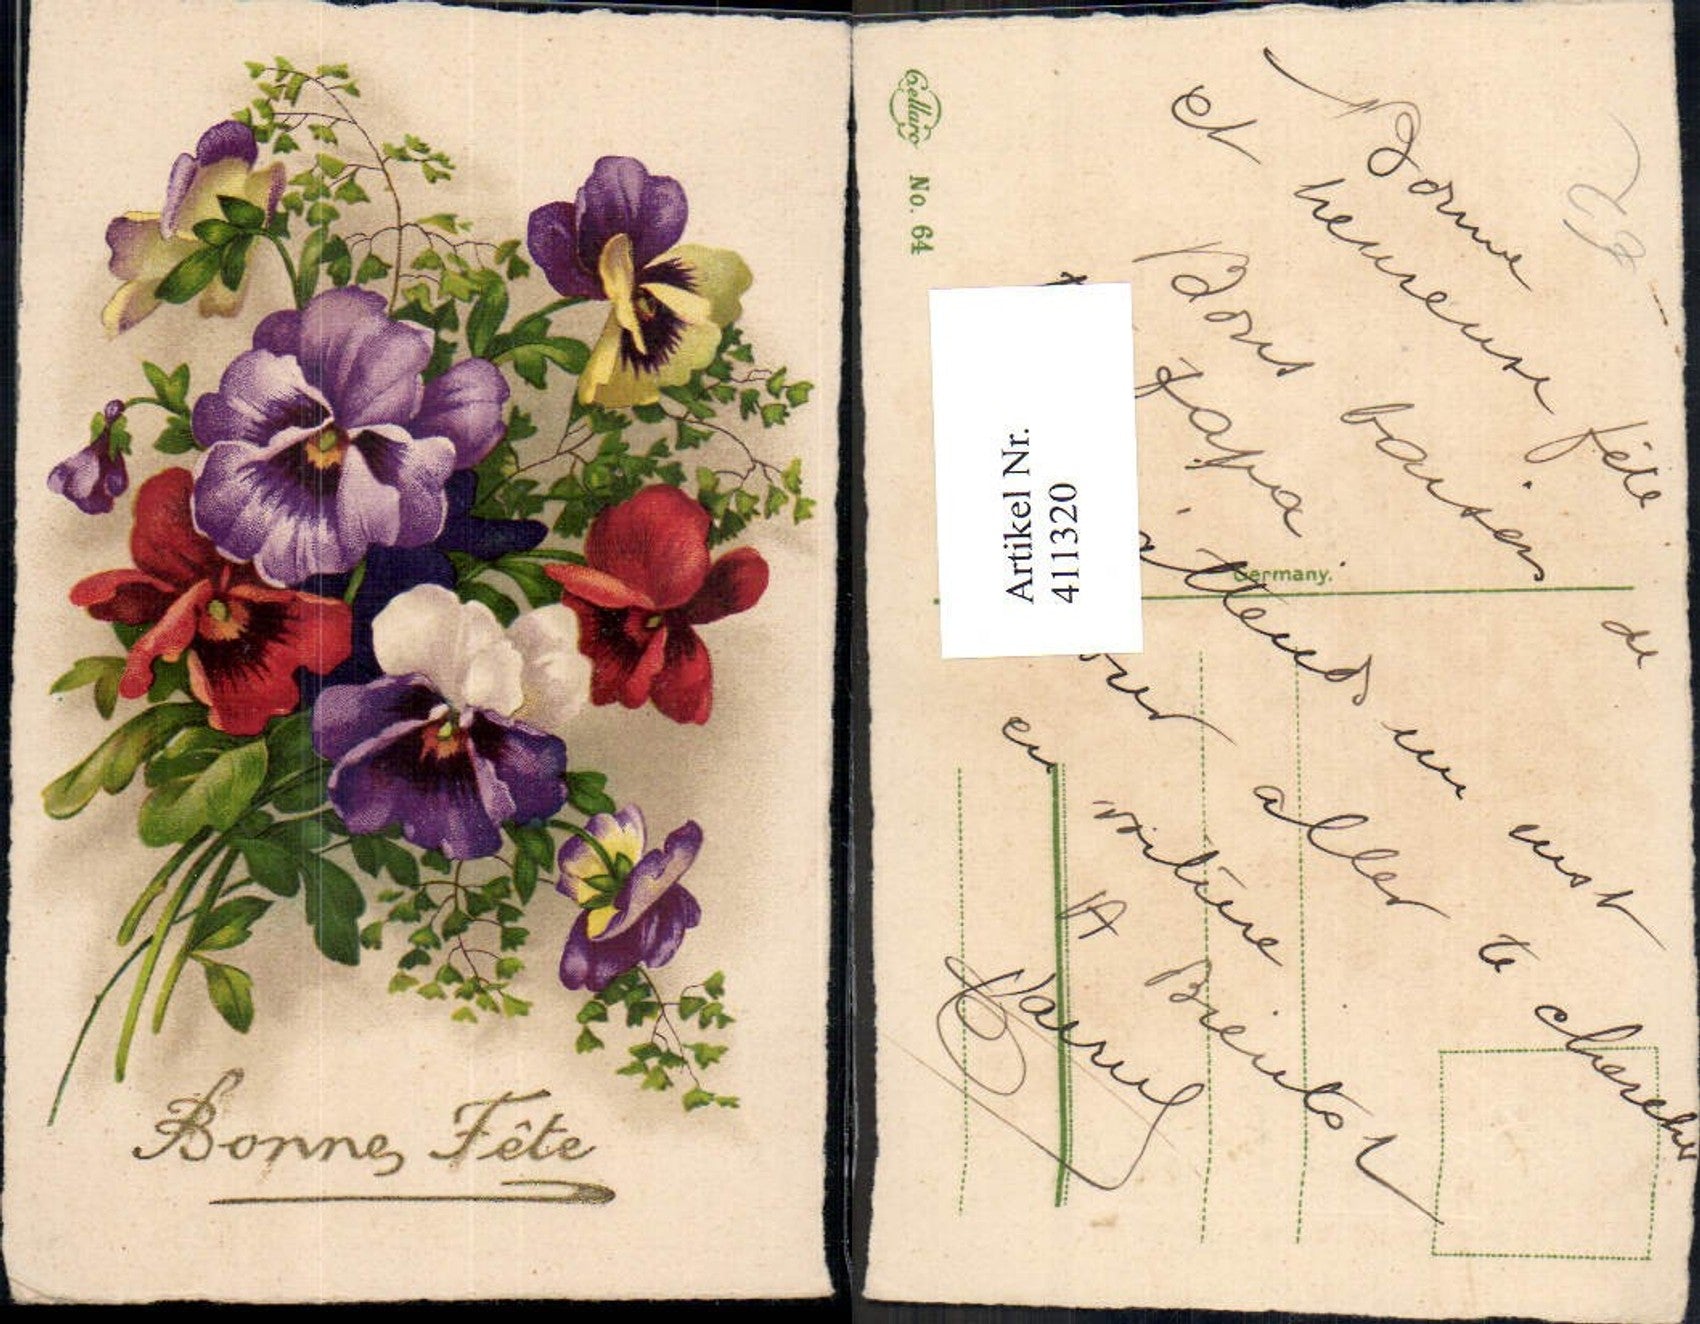 Bonne Fête
Cellaro No. 64
Germany.
Artikel Nr.
411320
Bonne
et heureuse fête
Bons baisers de
Papa
attends un mot
pour aller te chercher
en voiture
A Bientot
Daniel